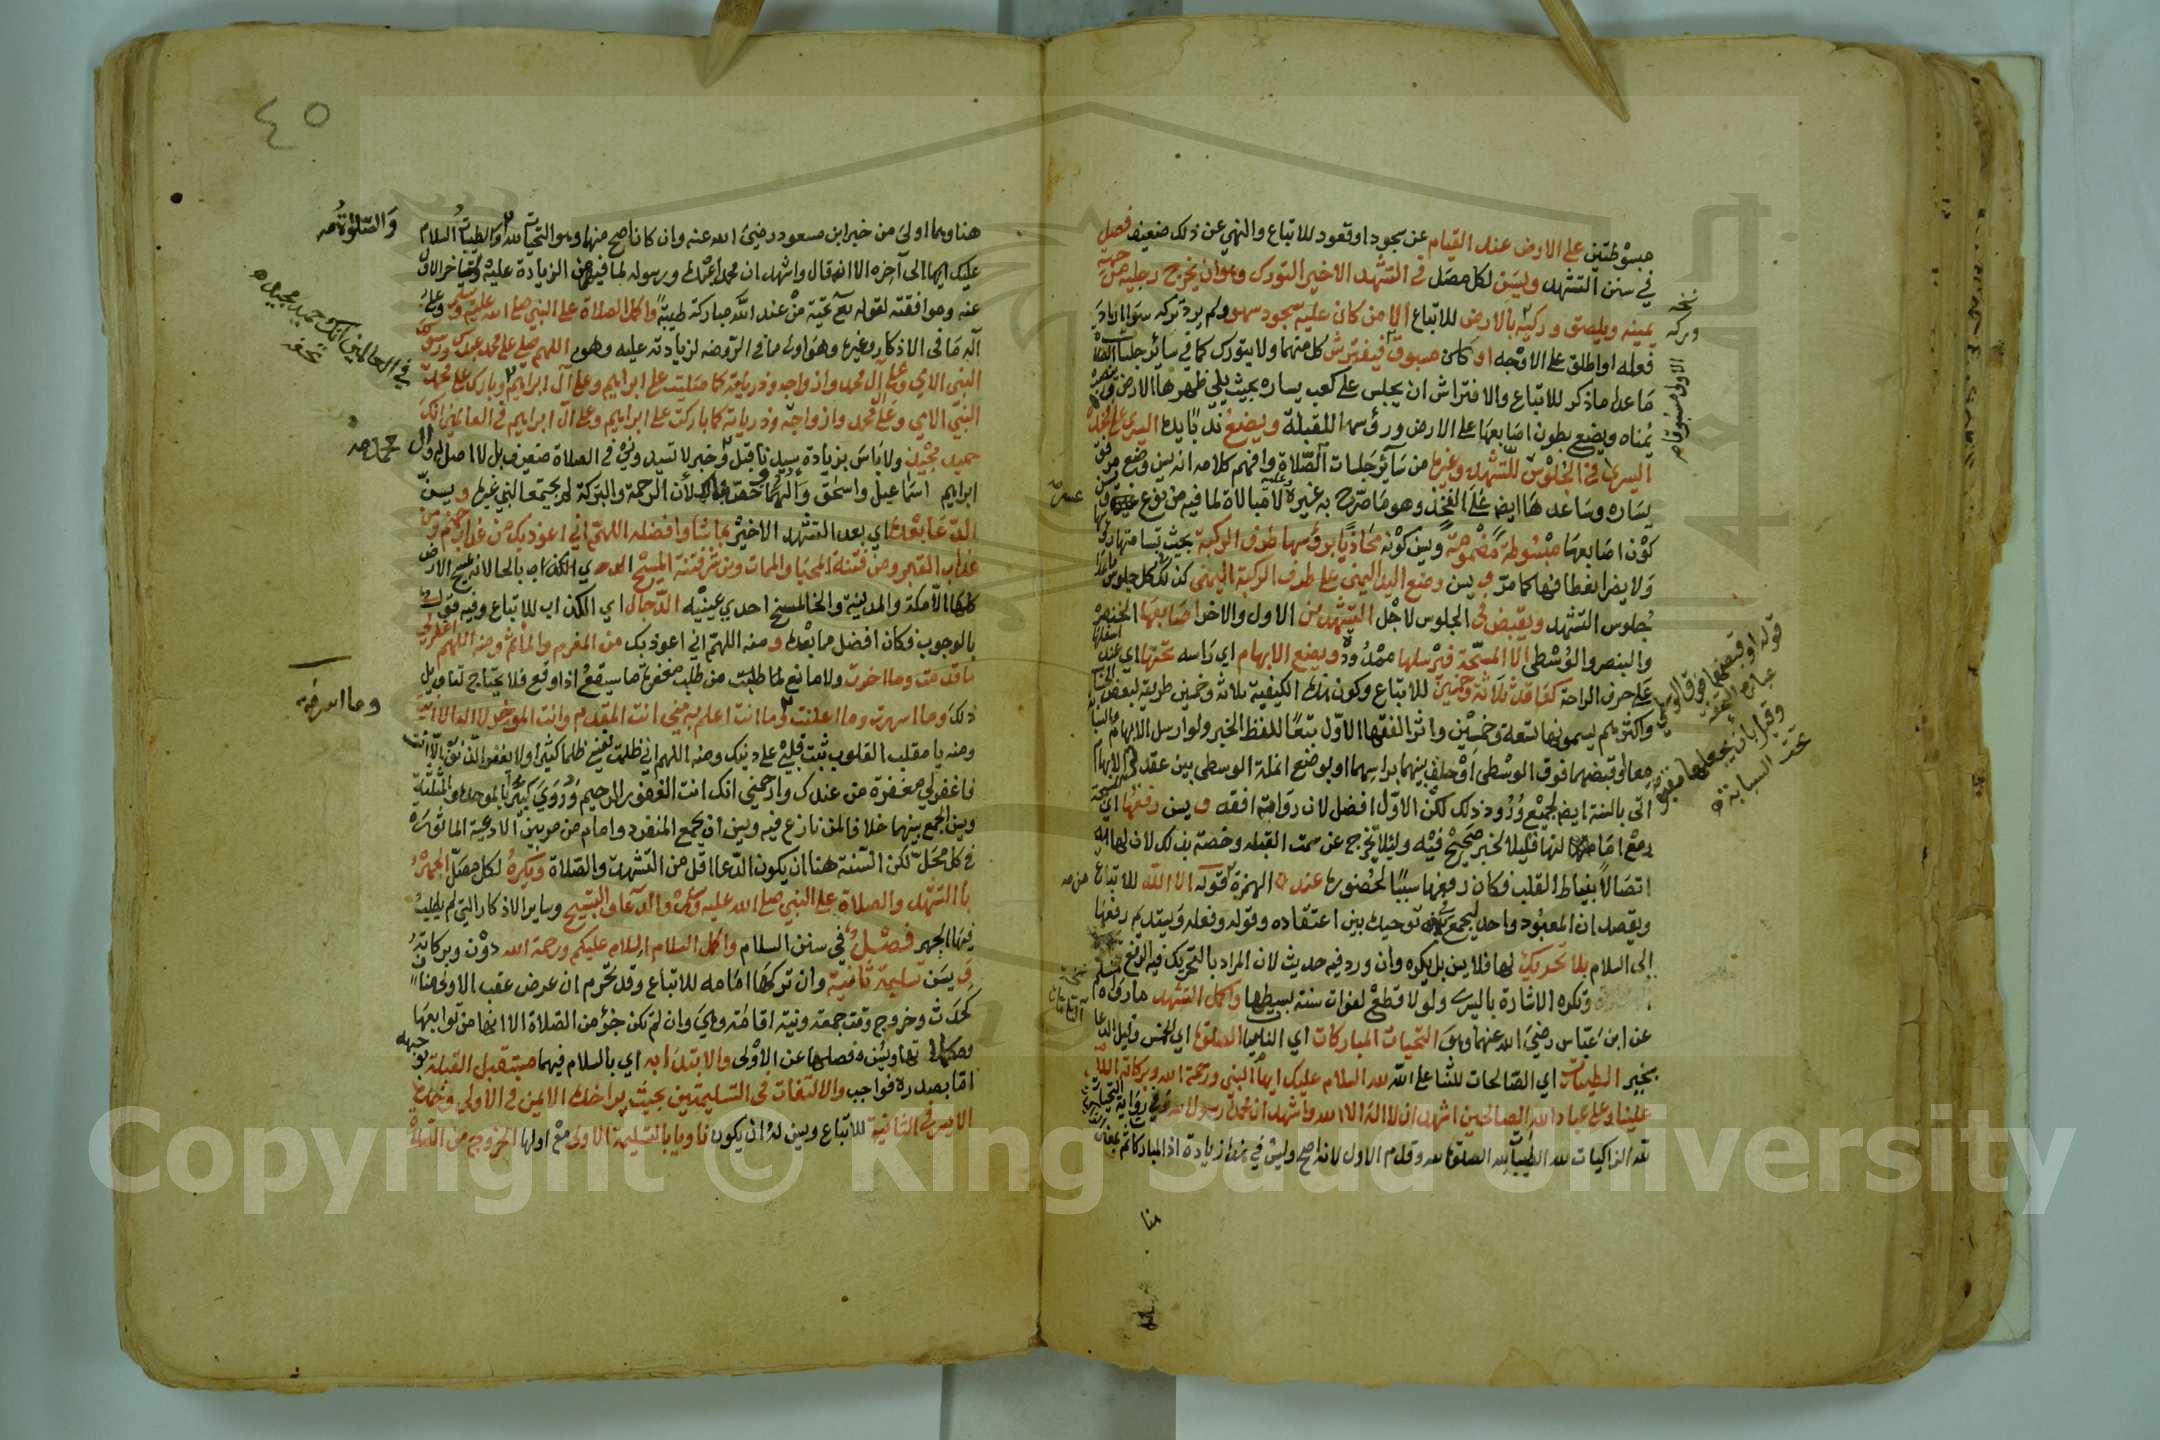 مبسوطتين على الارض عند القيام عن سجود او قعود للاتباع والنهي عن ذلك ضعيف فصل
في سنن التشهد ويسن لكل مصل في التشهد الاخير التورك وهو ان يخرج رجليه من جهة
يمينه ويلصق وركيه بالارض للاتباع الا من كان عليه سجود سهو ولم يرد تركه سوا اراد
فعله او اطلق على الاوجه او كان مسبوقا فيفترش كل منهما ولا يتورك كما في سائر جلسات الصلاة
ما عدا ما ذكر للاتباع والافتراش ان يجلس على كعب يساره بحيث يلي ظهرها الارض وينصب
يمناه ويضع بطون اصابعها على الارض ورؤسها للقبلة ويضع ندبا يده اليسرى على فخذه
اليسرى في الجلوس للتشهد وغيره من سائر جلسات الصلاة وافهم كلامه انه يسن وضع مرفق
يساره وساعدها ايضا على الفخذ وهو ما صرح به غيره ولا مبالاة لما فيه من نوع عسر
كون اصابعها مبسوطة مضمومة ويسن كونه محاذيا برؤسها طرف الركبة بحيث تسامتها رؤسها
ولا يضر انعطافها كما مر ويسن وضع اليد اليمنى على طرف الركبة اليمنى كذلك في كل جلوس ما عدا
جلوس التشهد ويقبض في الجلوس لاجل التشهدين الاول والاخر اصابعها الخنصر
والبنصر والوسطى الا المسبحة فيرسلها ممدودة ويضع الابهام اي راسه تحتها اي عند اسفلها
على حرف الراحة كعاقد ثلاثة وخمسين للاتباع وكون هذه الكيفية ثلاثة وخمسين طريقة لبعض الحساب
واكثرهم يسمونها تسعة وخمسين واثر الفقها الاول تبعا للفظ الخبر ولو ارسل الابهام والسبابة
معا او قبضهما فوق الوسطى او حلق بينهما براسهما او بوضع انملة الوسطى بين عقدتي الابهام
اتى بالسنة ايضا لجميع ورود ذلك لكن الاول افضل لان رواته افقه ويسن رفعها اي المسبحة
مع امالتها قليلا لخبر صحيح فيه ولئلا تخرج عن سمت القبلة وخصت بذلك لان لها
اتصالا بنياط القلب فكان رفعها سببا لحضوره عند الهمزة من قوله الا الله للاتباع
ويقصد ان المعبود واحد ليجمع في توحيده بين اعتقاده وقوله وفعله ويستديم رفعها
الى السلام بلا تحريك لها فلا يسن بل يكره وان ورد فيه حديث لان المراد بالتحريك فيه الرفع
وتكره الاشارة باليسرى ولو لاقطع لفوات سنة بسطها واكمل التشهد ما رواه مسلم
عن ابن عباس رضي الله عنهما وهو التحيات المباركات اي الناميات الصلوات اي الخمس وقيل الدعا
بخير الطيبات اي الصالحات للثنا على الله لله السلام عليك ايها النبي ورحمة الله وبركاته السلام
علينا وعلى عباد الله الصالحين اشهد ان لا اله الا الله واشهد ان محمدا رسول الله وفي رواية التحيات
لله الزاكيات لله الطيبات لله الصلوات لله وقدم الاول لانه اصح وليس في هذا زيادة اذ المباركات ثم بمعنى
هنا
نسخة
وركه
الاول مسبوقا
عسر
قوله او قبضهما فوق الوسطى
عبارة التحفة
وقيل بان يجعلها مقبوضة
تحت السبابة
من
٤٥
هنا وهما اولى من خبر ابن مسعود رضي الله عنه وان كان اصح منها وهو التحيات لله والطيبات السلام
عليك ايها الى آخره الا انه قال واشهد ان محمدا عبده ورسوله لما فيه من الزيادة عليه ولتاخر الاول
عنه وموافقته لقوله تع تحية من عند الله مباركة طيبة واكمل الصلاة على النبي صلى الله عليه وسلم وعلى
آله ما في الاذكار وغيره وهو اولى مما في الروضة لزيادته عليه وهو اللهم صل على محمد عبدك ورسولك
النبي الامي وعلى ال محمد وازواجه وذريته كما صليت على ابراهيم وعلى آل ابراهيم وبارك على محمد
النبي الامي وعلى محمد وازواجه وذرياته كما باركت على ابراهيم وعلى ال ابراهيم في العالمين انك
حميد مجيد ولا باس بزيادة سيدنا قبل محمد وخبر لا تسيدوني في الصلاة ضعيف بل لا اصل له وال
ابراهيم اسماعيل واسحق وآلهما وخص بالذكر لان الرحمة والبركة لم يجتمعا لنبي غيره ويسن
الدعا بعده اي بعد التشهد الاخير بما شا وافضله اللهم اني اعوذ بك من عذاب جهنم ومن
عذاب القبر ومن فتنة المحيا والممات ومن شر فتنة المسيح الدجال اي الكذاب بالحا لانه يمسح الارض
كلها الا مكة والمدينة وبالخا لمسخ احدى عينيه الدجال اي الكذاب للاتباع وفيه قول
بالوجوب فكان افضل مما بعده ومنه اللهم اني اعوذ بك من المغرم والمأثم ومنه اللهم اغفر لي
ما قدمت وما اخرت ولا مانع لما طلبت من طلب مغفرة ما سيقع اذا وقع فلا يحتاج لتاويل
ذلك وما اسررت وما اعلنت وما انت اعلم به مني انت المقدم وانت المؤخر لا اله الا انت
ومنه يا مقلب القلوب ثبت قلبي على دينك ومنه اللهم اني ظلمت نفسي ظلما كثيرا ولا يغفر الذنوب الا انت
فاغفر لي مغفرة من عندك وارحمني انك انت الغفور الرحيم وروي كبيرا بالموحدة والمثلثة
ويسن الجمع بينهما خلافا لمن نازع فيه ويسن ان يجمع المنفرد وامام من مر بين الادعية الماثورة
في كل محل لكن السنة هنا ان يكون الدعا اقل من التشهد والصلاة ويكره لكل مصل الجهر
بالتشهد والصلاة على النبي صلى الله عليه وسلم والدعا والتسبيح وسائر الاذكار التي لم يطلب
فيها الجهر فصل في سنن السلام واكمل السلام السلام عليكم ورحمة الله دون وبركاته
ويسن تسليمة ثانية وان تركها امامه للاتباع وقد تحرم ان عرض عقب الاولى مناف
كحدث وخروج وقت جمعة ونية اقامة وهي وان لم تكن جزؤ من الصلاة الا انها من توابعها
ومكملاتها ويسن فصلها عن الاولى والابتدا به اي بالسلام فيهما مستقبل القبلة بوجهه
اما بصدره فواجب والالتفات في التسليمتين بحيث يرى خده الايمن في الاولى وخده
الايسر في الثانية للاتباع ويسن له ان يكون ناويا بالتسليمة الاولى مع اولها الخروج من الصلاة
والصلوات
في العالمين انك حميد مجيد
تحفه
محمد
وما اسرفت
Copyright © King Saud University